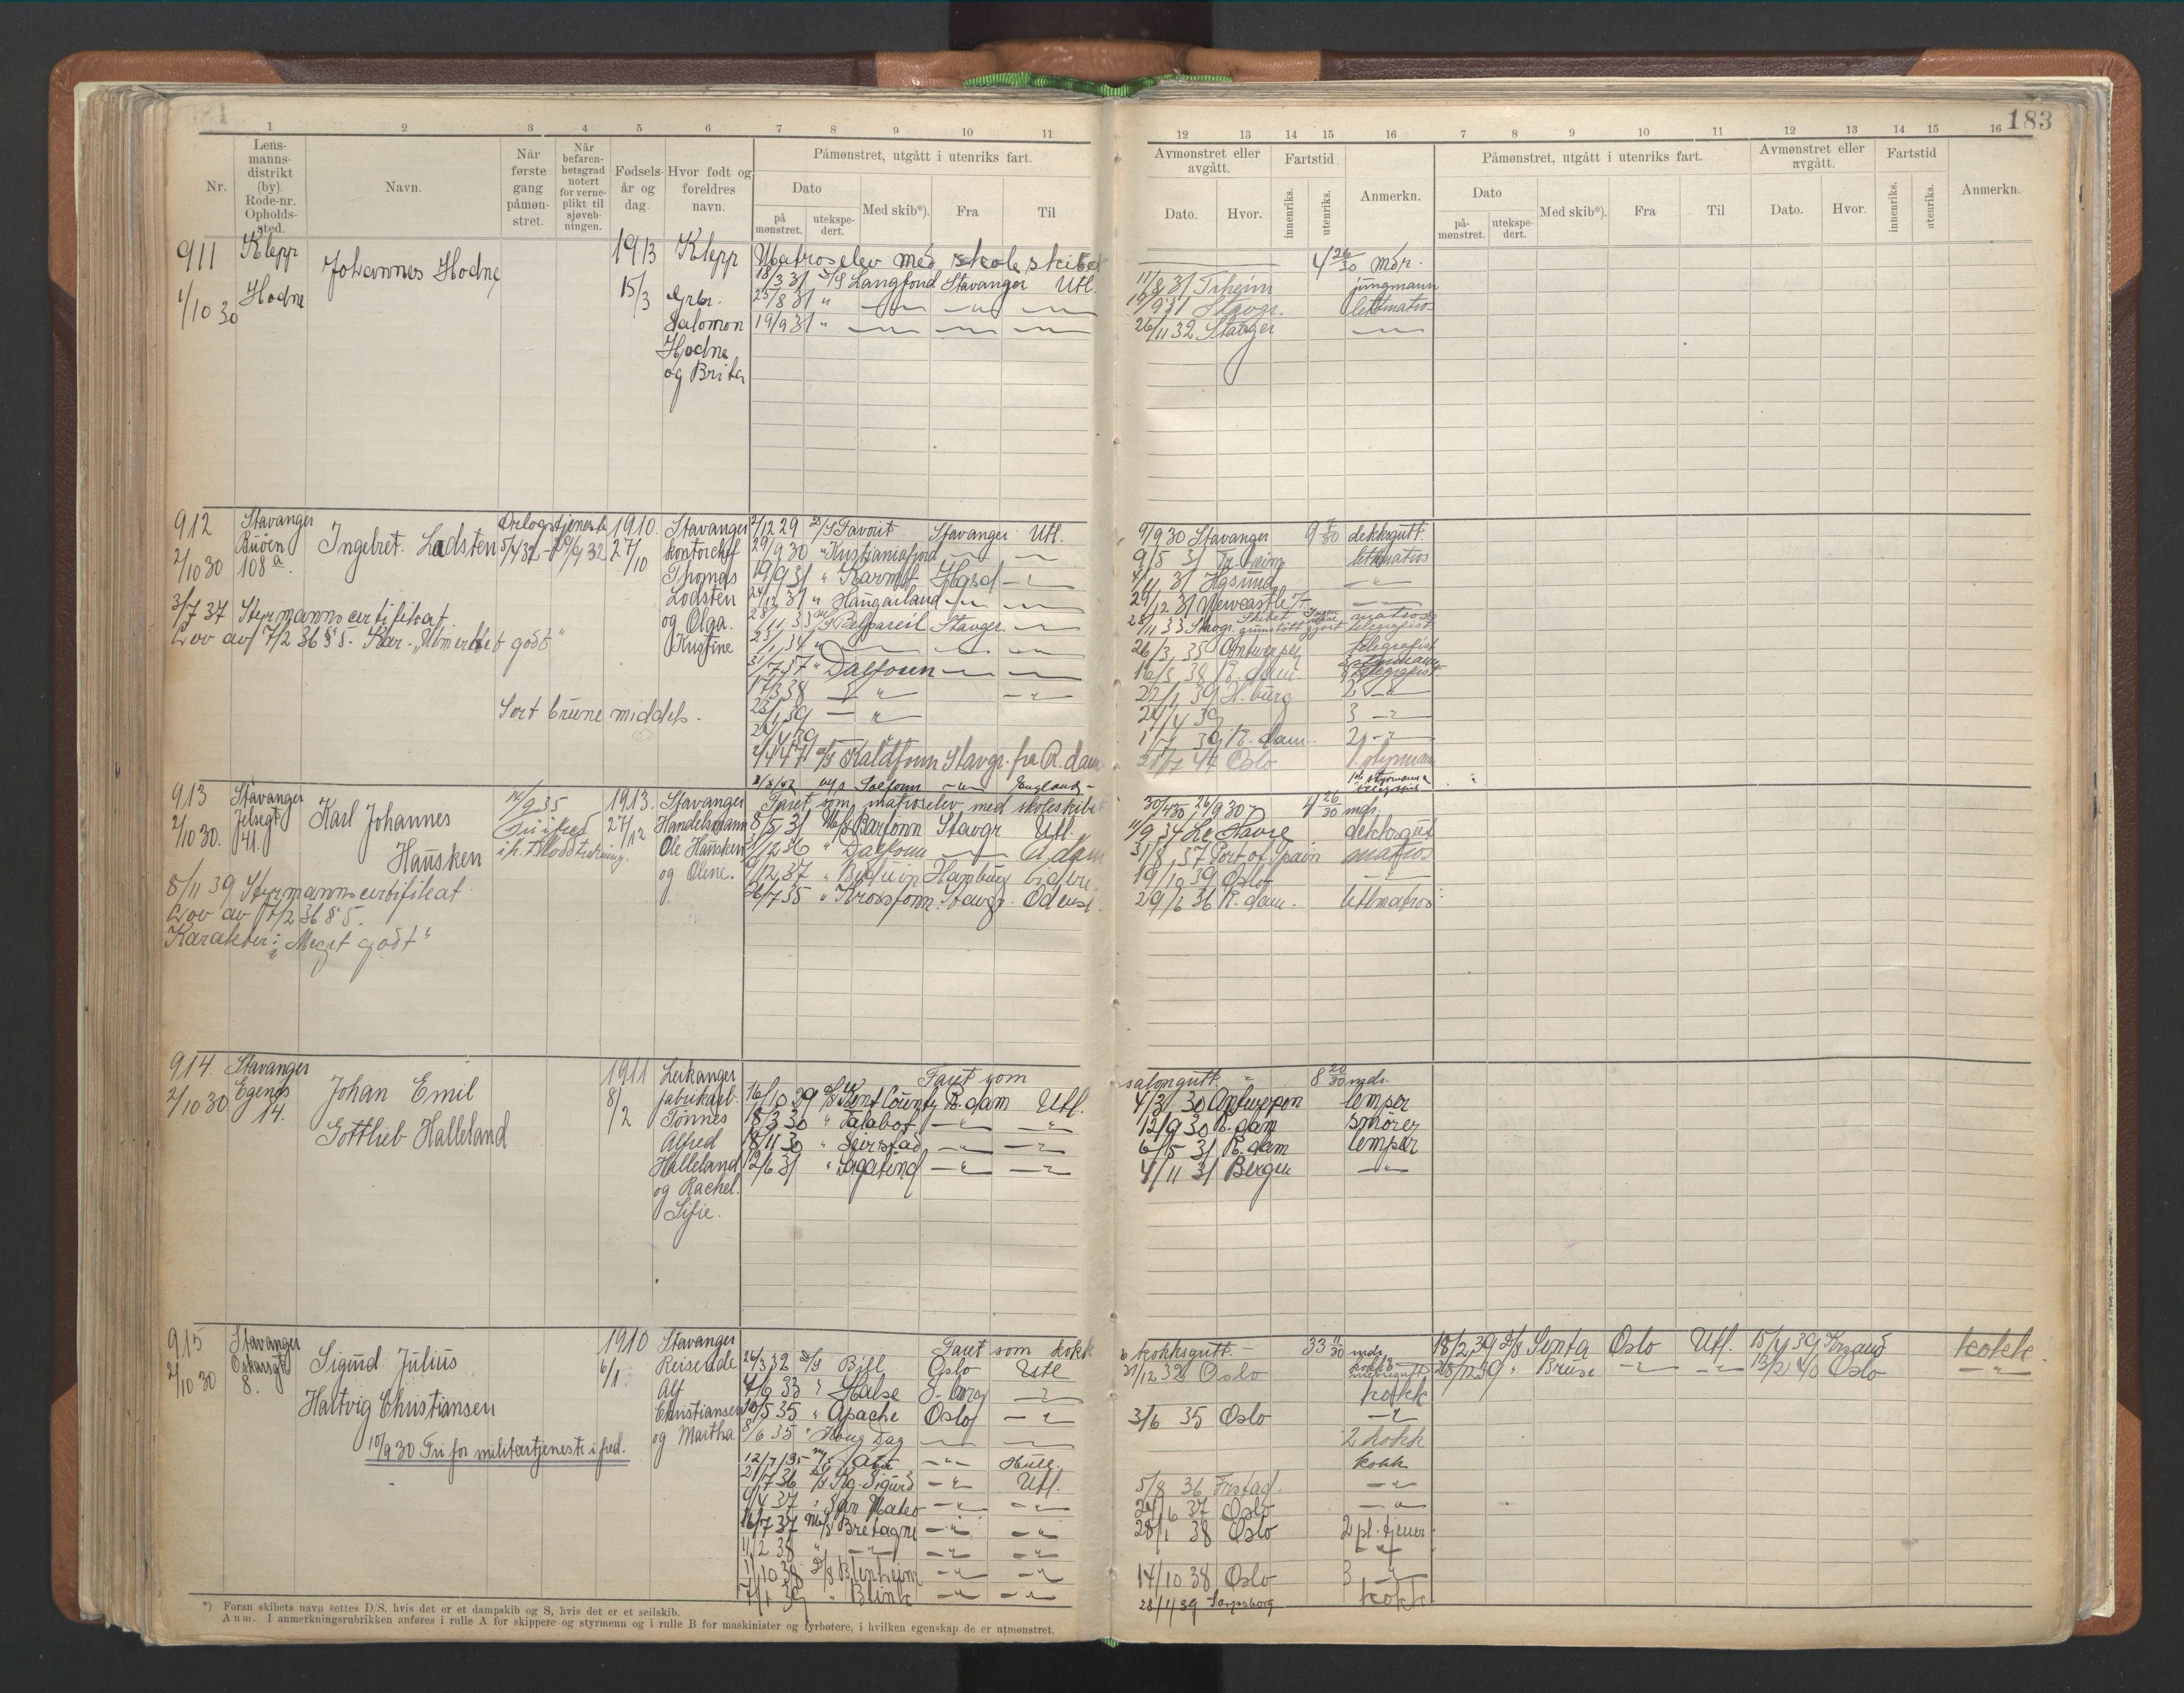 183
1 2 3 4 5 6 7 8 9 10 11
12 13 14 15 16 7 8 9 10 11 12 13 14 15 16
Nr.
Lens-
manns-
distrikt
(by).
Rode-nr.
Opholds-
sted.
Navn.
Når
første
gang
påmøn-
stret.
Når
befaren-
hetsgrad
notert
for verne-
plikt til
sjøveb-
ningen.
Fødsels-
år og
dag.
Hvor født og
foreldres
navn.
Påmønstret, utgått i utenriks fart.
Dato
på
mønstret.
utekspe-
dert.
Med skib*).
Fra
Til
Avmønstret eller
avgått.
Dato.
Hvor.
Fartstid
innenriks.
utenriks.
Anmerkn.
Påmønstret, utgått i utenriks fart.
Dato
på-
mønstret.
utekspe-
dert.
Med skib*).
Fra
Til
Avmønstret eller
avgått.
Dato.
Hvor.
Fartstid
innenriks.
utenriks.
Anmerkn.
911
1/10 30
Klepp
Hodne
Johannes Hodne
1913
15/3
Klepp
Grbr.
Salomon
Hodne
og Brita
Matroselev med skoleskibet
18/3 31 D/S Langfond Stavanger Utl.
25/8 31 " — " — — " — — " —
19/9 31 " — " — — " — — " —
4 26/30 mdr.
11/8 31 Trheim jungmann
19/9 31 Stavgr. lettmatros
26/11 32 Stavger — " —
912
2/10 30
Stavanger
Buøen
108 a.
Ingebret. Lodsten
Orlogstjeneste
5/4 32 - 30/9 32
1910.
27/10
Stavanger
kontorchef
Thomas
Lodsten
og Olga.
Kristine
3/7 37 Styrmannscertifikat.
Lov av 7/2 36 § 5. Kar. "Utmerket godt"
Sort brune middels.
2/12 29 D/S Favorit Stavanger Utl.
29/9 30 " Kristianiafjord — " — — " —
19/9 31 " Karmt Hgsd — " —
24/12 31 " Haugarland — " — — " —
28/11 33 M/S Stavger. — " —
23/1 34 " — " — — " — — " —
31/7 37 " Dalfonn — " — — " —
17/3 38 — " — — " —
23/1 39 — " —
2/4 47 M/S Kaldfonn Stavgr. fra R.dam
2/8/47 M/S Solfonn — " — England —
9/9 30 Stavanger 9 7/30 dekksgutt.
9/5 31 Tr.heim lettmatros
4/11 31 Hgsund — " —
29/12 31 Newcastle — " —
28/11 33 Stavgr. Skibet grunstøtt matros telegrafist
26/3 35 Antwerpen telegrafist
16/3 38 R.dam
22/1 39 H.burg 2. — " —
24/4 39 3 — " —
1/7 39 R.dam 2 — " —
Oslo 1 styrmann
1ste styrmann
913
2/10 30.
Stavanger
Jelsegt
41.
Karl Johannes
Hausken
14/9 35
Fri i fred
i.h.t. loddtrekning.
1913.
27/12
Stavanger
Handelsmann
Ole Hausken
og Oline.
8/11 39 Styrmannscertifikat
Lov av 7/2 36 § 5.
Karakter: "Meget godt"
Faret som matroselev med skoleskibet
8/5 31 M/S Barfonn Stavgr Utl.
1/12 36 " Dalfonn — " — A.dam
9/12 37 " Beduin Hamburg
26/7 35 " Krossfonn. Stavgr. Odense.
30/4 30 26/9 30 4 26/30 mdr.
11/9 34 Le Havre dekksgutt
31/8 37 Port of Spain matros
19/10 39 Oslo — " —
29/6 36 R.dam. lettmatros
914.
2/10 30
Stavanger
Egenes
14.
Johan Emil
Gottlieb Halleland
1911
8/2
Leikanger
fabrikarb.
Tønnes
Alfred
Halleland
og Rachel.
Sifie.
Faret som
16/10 29 D/S Kent County R.dam Utl.
18/3 30 " Talabot — " — — " —
18/11 30 " Geirstad — " — — " —
12/6 31 " Sagatind — " — — " —
salongutt — " 8 20/30 mdr.
4/3 30 Antwerpen lemper
12/9 30 R.dam smører
6/5 31 R.dam lemper
4/11 31 Bergen — " —
915
2/10 30
Stavanger
Oskarsgt
8.
Sigurd Julius
Hartvig Christiansen
10/9 30 Fri for militærtjeneste i fred.
1910
6/1
Stavanger
Reisende
Alf
Christiansen
og Martha
Faret som kokk
26/3 32 D/S Bill Oslo Utl
4/6 33 " Halse S.borg — " —
30/5 35 " Apache Oslo — " —
8/6 35 " Kong Dag — " — — " —
12/7/35 M/S — " — Hull.
21/7 36 D/S Kg. Sigurd — " — Utl.
9/4 37 " San Mateo — " — — " —
16/7 37 M/S Bretagne — " — — " —
11/2 38 " — " — — " — — " —
1/10 38 D/S Blenheim — " — — " —
7/1 39 " Blink — " — — " —
kokksgutt — 33 11/30 mdr.
31/12 32 Oslo
kokk
3/6 35 Oslo — " —
2 kokk
kokk
5/8 36 Frstad. — " —
24/6 37 Oslo — " —
28/1 38 Oslo 2 pl. tjener
— " —
14/10 38 Oslo 3 — " —
28/1 39 Sarpsborg kokk
18/2 39 D/S Senta Oslo Utl. 15/4 39 Krsand kokk.
28/12 39 " Bruse — " — — " — 13/2 40 Oslo — " —
*) Foran skibets navn settes D/S, hvis det er et dampskib og S, hvis det er et seilskib.
Anm. I anmerkningsrubrikken anføres i rulle A for skippere og styrmenn og i rulle B for maskinister og fyrbøtere, i hvilken egenskap de er utmønstret.